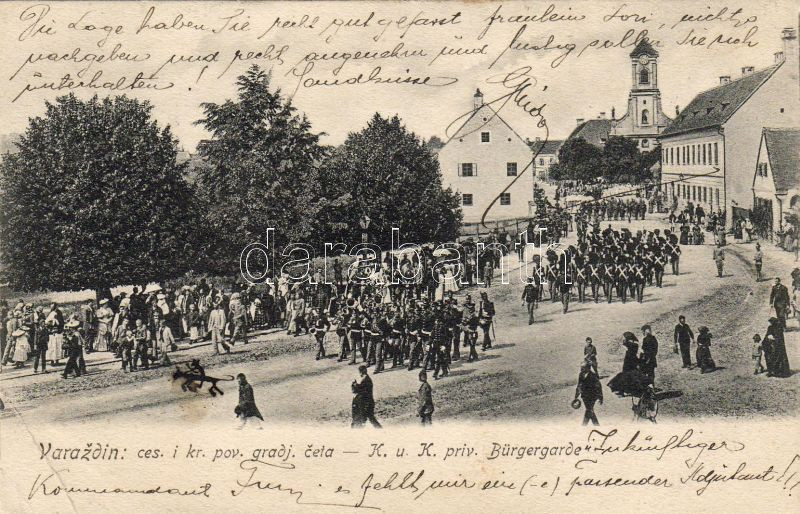 Die Lage haben Sie recht gut gefasst fräulein Lori, nichts
nachgeben und recht angenehm und lustig sollen Sie sich
unterhalten!
Handküsse
darabanth
Varaždin: ces. i kr. pov. gradj. četa — K. u. K. priv. Bürgergarde
Zukünftiger
Kommandant es fehlt mir ein (-e) passender Adjutant!!